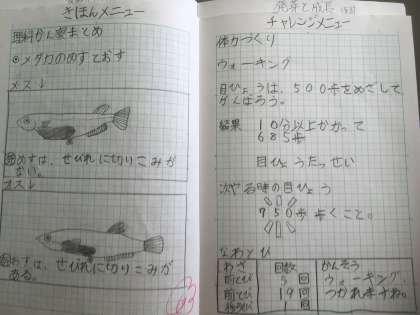 きほんメニュー
理科かん察まとめ
⦿メダカのめすておす
メス↓
めすは、せびれに切りこみが
ない。
オス↓
おすは、せびれに切りこみが
ある。
発芽と成長
チャレンジメニュー
体力づくり
ウォーキング
目ひょうは、500歩をめざして
がんばろう。
結果 10分以上かかって
685歩
目ひょうたっせい
次やる時の目ひょう
750歩歩くこと。
なわとび
わざ 回数 かんそう
前とび 5回 ウォーキング
前とび 19回 つかれますね。
後ろとび 1回